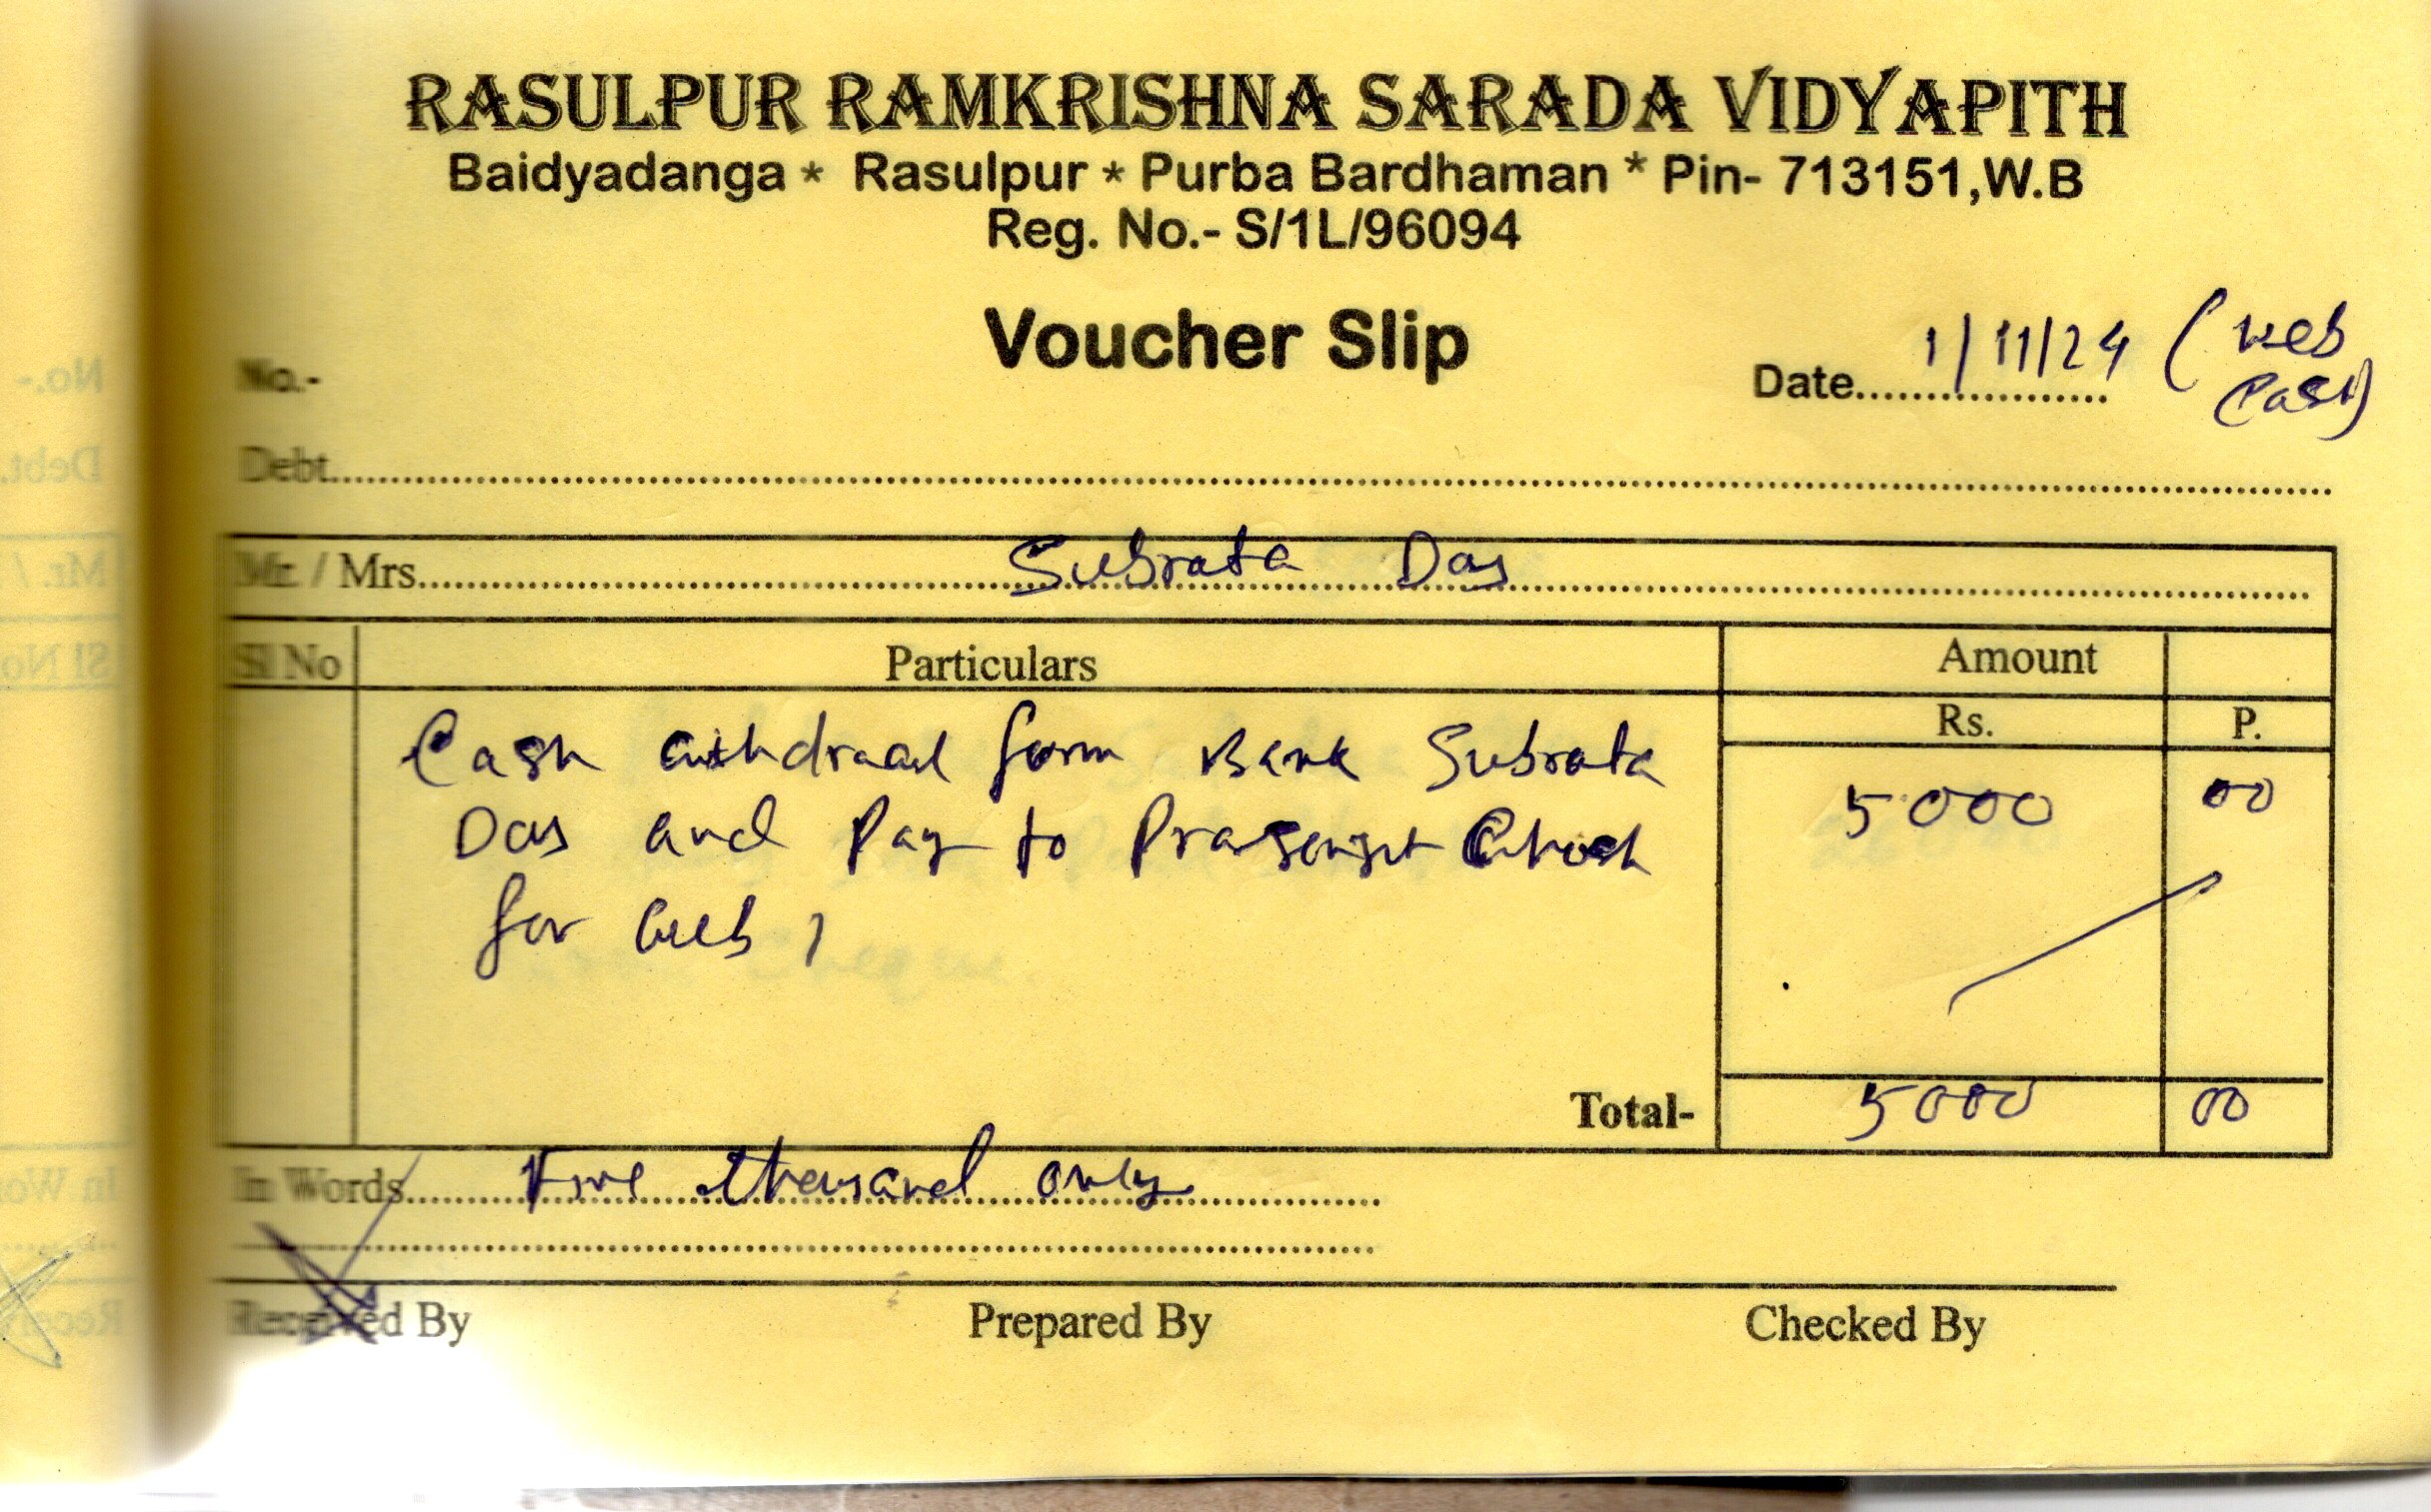 RASULPUR RAMKRISHNA SARADA VIDYAPITH
Baidyadanga * Rasulpur * Purba Bardhaman * Pin- 713151,W.B
Reg. No.- S/1L/96094
Voucher Slip
No.-
Date 1/11/24 (Web
Cash)
Debt
Mr. / Mrs. Subrata Das
Sl No Particulars Amount
Rs. P.
Cash form Bank Subrata
5000 00
Das and Pay to Prasenjit Ghosh
for web 1
Total- 5000 00
In Words Five thousand only
Received By Prepared By Checked By